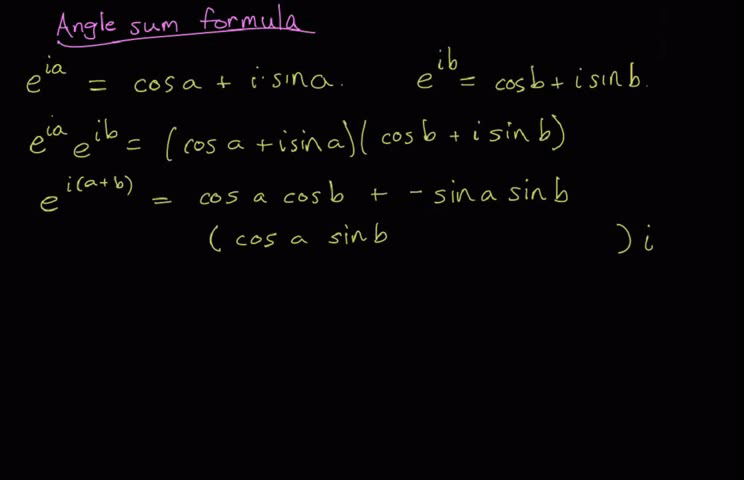 Angle sum formula
e^{ia} = cos a + i·sin a. e^{ib} = cos b + i sin b.
e^{ia} e^{ib} = (cos a + i sin a)(cos b + i sin b)
e^{i(a+b)} = cos a cos b + - sin a sin b
(cos a sin b ) i